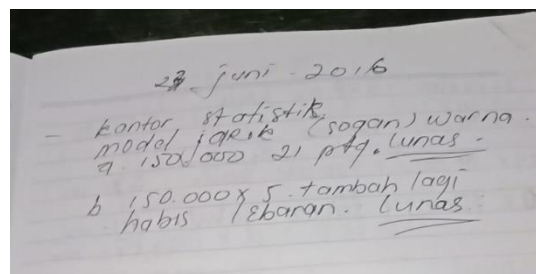 27 juni 2016
- kantor statistik
model jgrik (sogan) warna.
a. 150.000 21 ptg. lunas.
b 150.000 x 5. tambah lagi
habis lebaran. lunas